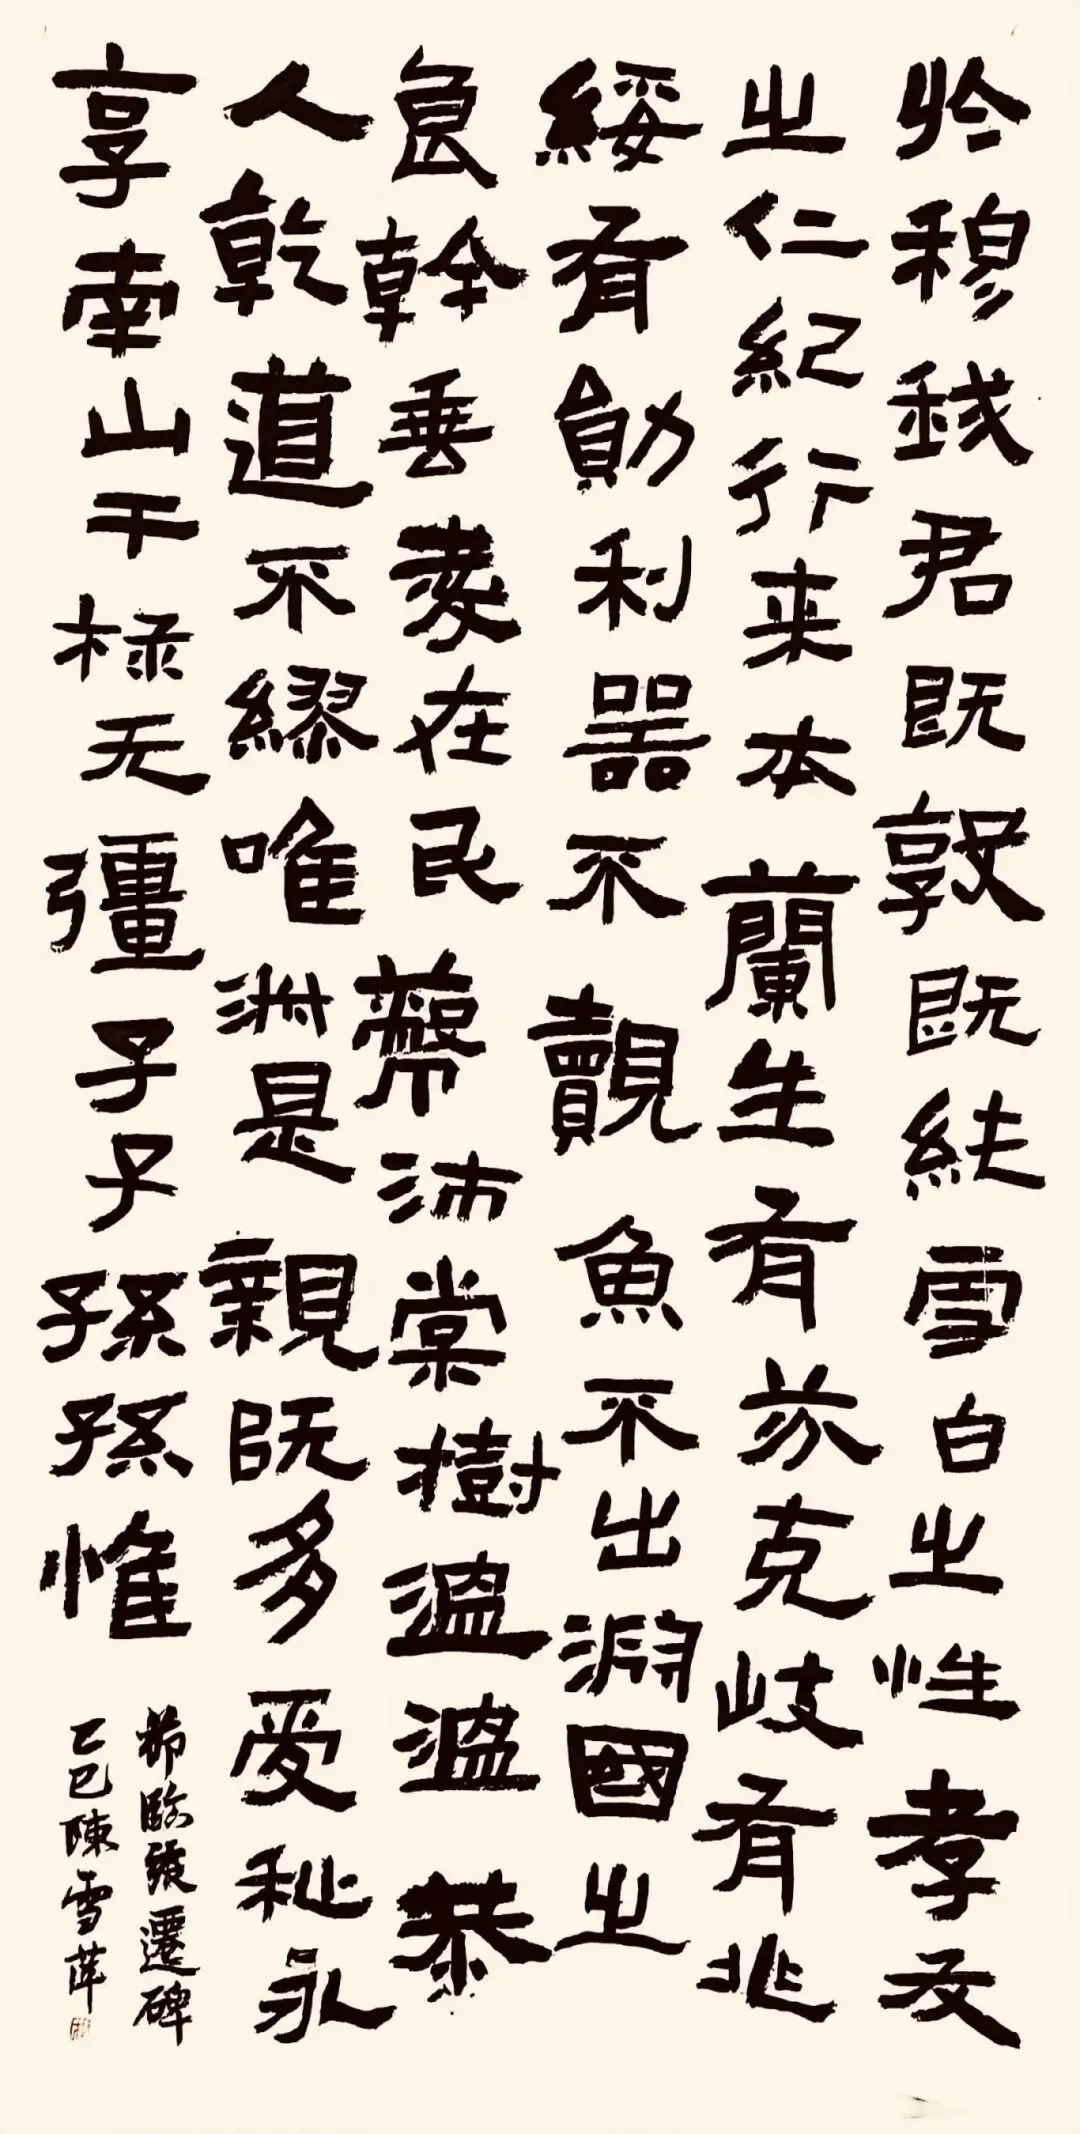 於穆我君既敦既純雪白之性孝友
之仁紀行来本蘭生有芬克岐有兆
綏有勛利器不覿魚不出淵國之
良幹垂愛在民蔽沛棠樹溫溫恭
人乾道不繆唯淑是親既多受祉永
享南山干祿无彊子子孫孫惟
節臨張遷碑
乙巳陳雪萍